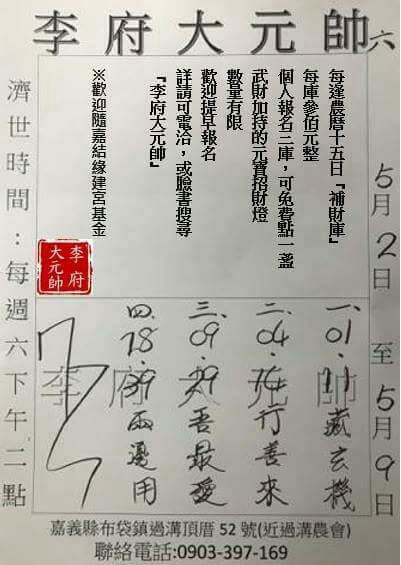 李府大元帥
六
5月2日至5月9日
每逢農曆十五日『補財庫』
每庫參佰元整
個人報名三庫，可免費點一盞
武財加持的元寶招財燈
數量有限
歡迎提早報名
詳請可電洽，或臉書搜尋
『李府大元帥』
※歡迎隨嘉結緣建宮基金
濟世時間：每週六下午二點
李府大元帥
李府大元帥
一、01.11藏玄機
二、04.14行善來
三、09.29吾最愛
四、18.39兩邊用
嘉義縣布袋鎮過溝頂厝52號(近過溝農會)
聯絡電話:0903-397-169